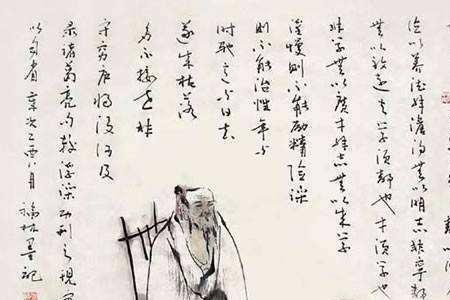 以養德非澹泊無以明志非寧靜
無以致遠夫學須靜也才須學也
非學無以廣才非志無以成學
淫慢則不能勵精險躁
則不能治性年與
時馳意與日去
遂成枯落
多不接世悲
守窮廬將復何及
录諸葛亮
以自省 歲次乙酉八月 福林墨記